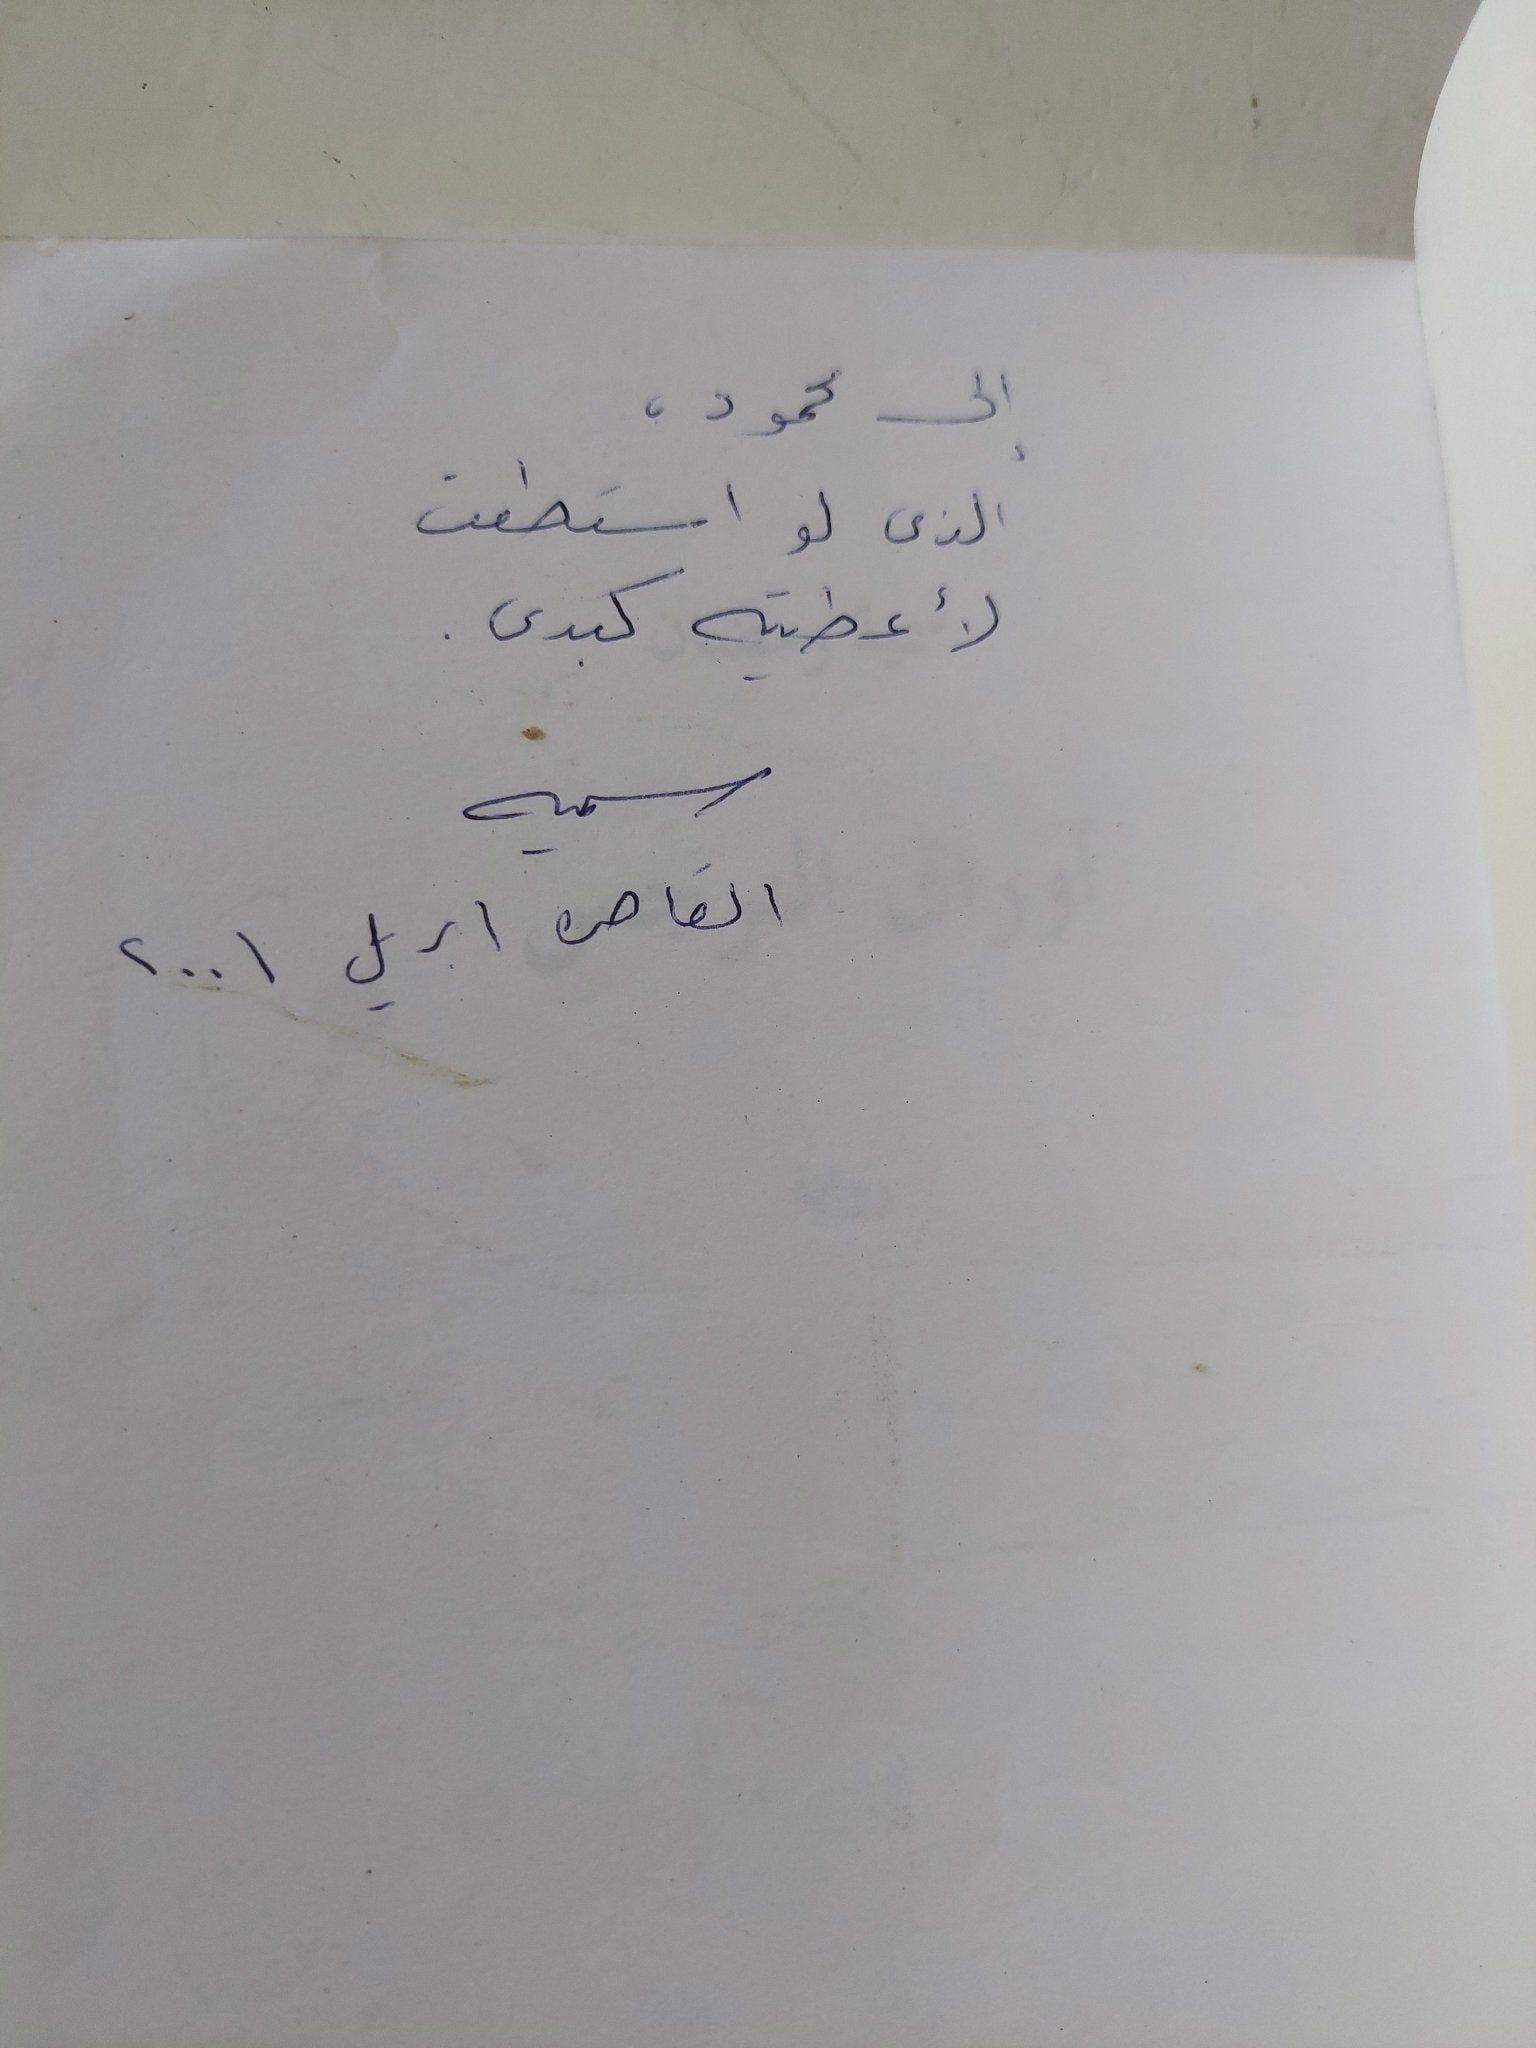 إلى محمود،
الذى لو استطعت
لأعطيته كبدى.
سميه
القاهره ابريل ٢٠٠١